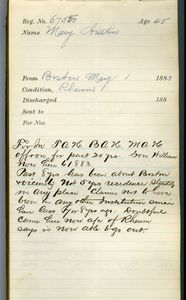 Reg. No. 67580 Age 45
Name Mary Austin
From Boston May 1 1883
Condition, Rheum
Discharged 188
Sent to
For Nos.
For In I.A.H. B.A.H. M.A.H.
off & on for past 20 yrs. Son William
now here 61883.
Past 8 yrs has been about Boston
vicinity. No 5 yrs residence
in any place. Claims not to have
been in any other Institution since
here last for 8 yrs ago. Doubtful
came here now afc of Rheum
says is now able to go out.